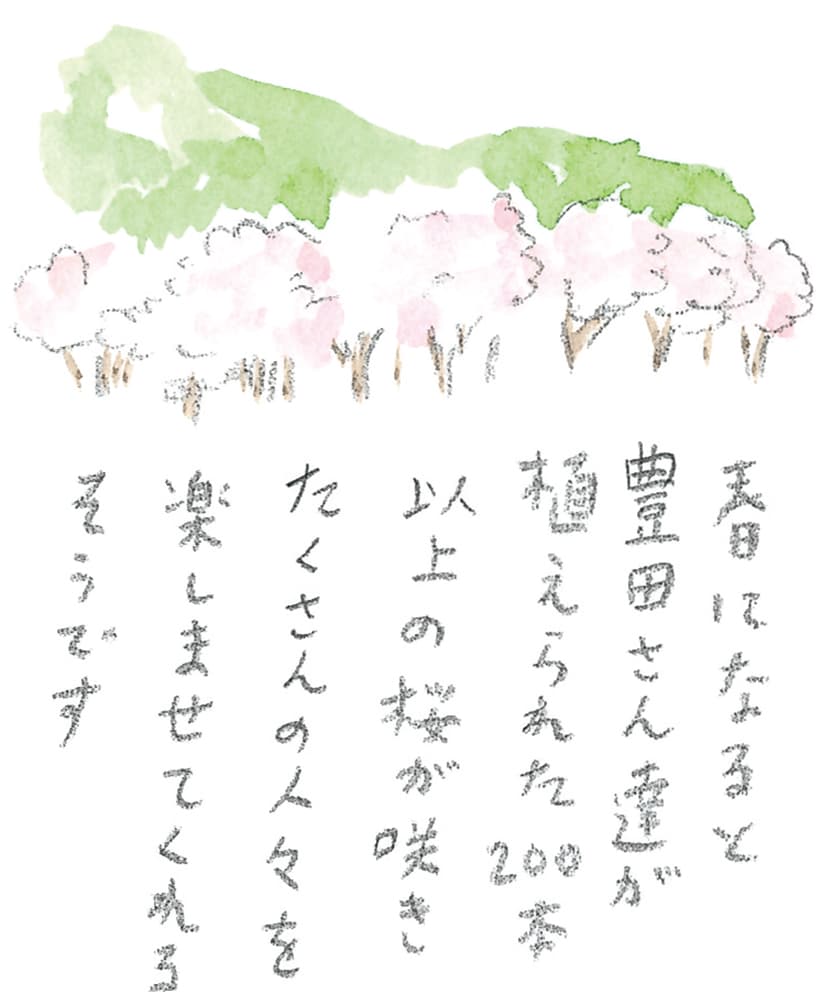 春になると
豊田さん達が
植えられた200本
以上の桜が咲き
たくさんの人々を
楽しませてくれる
そうです